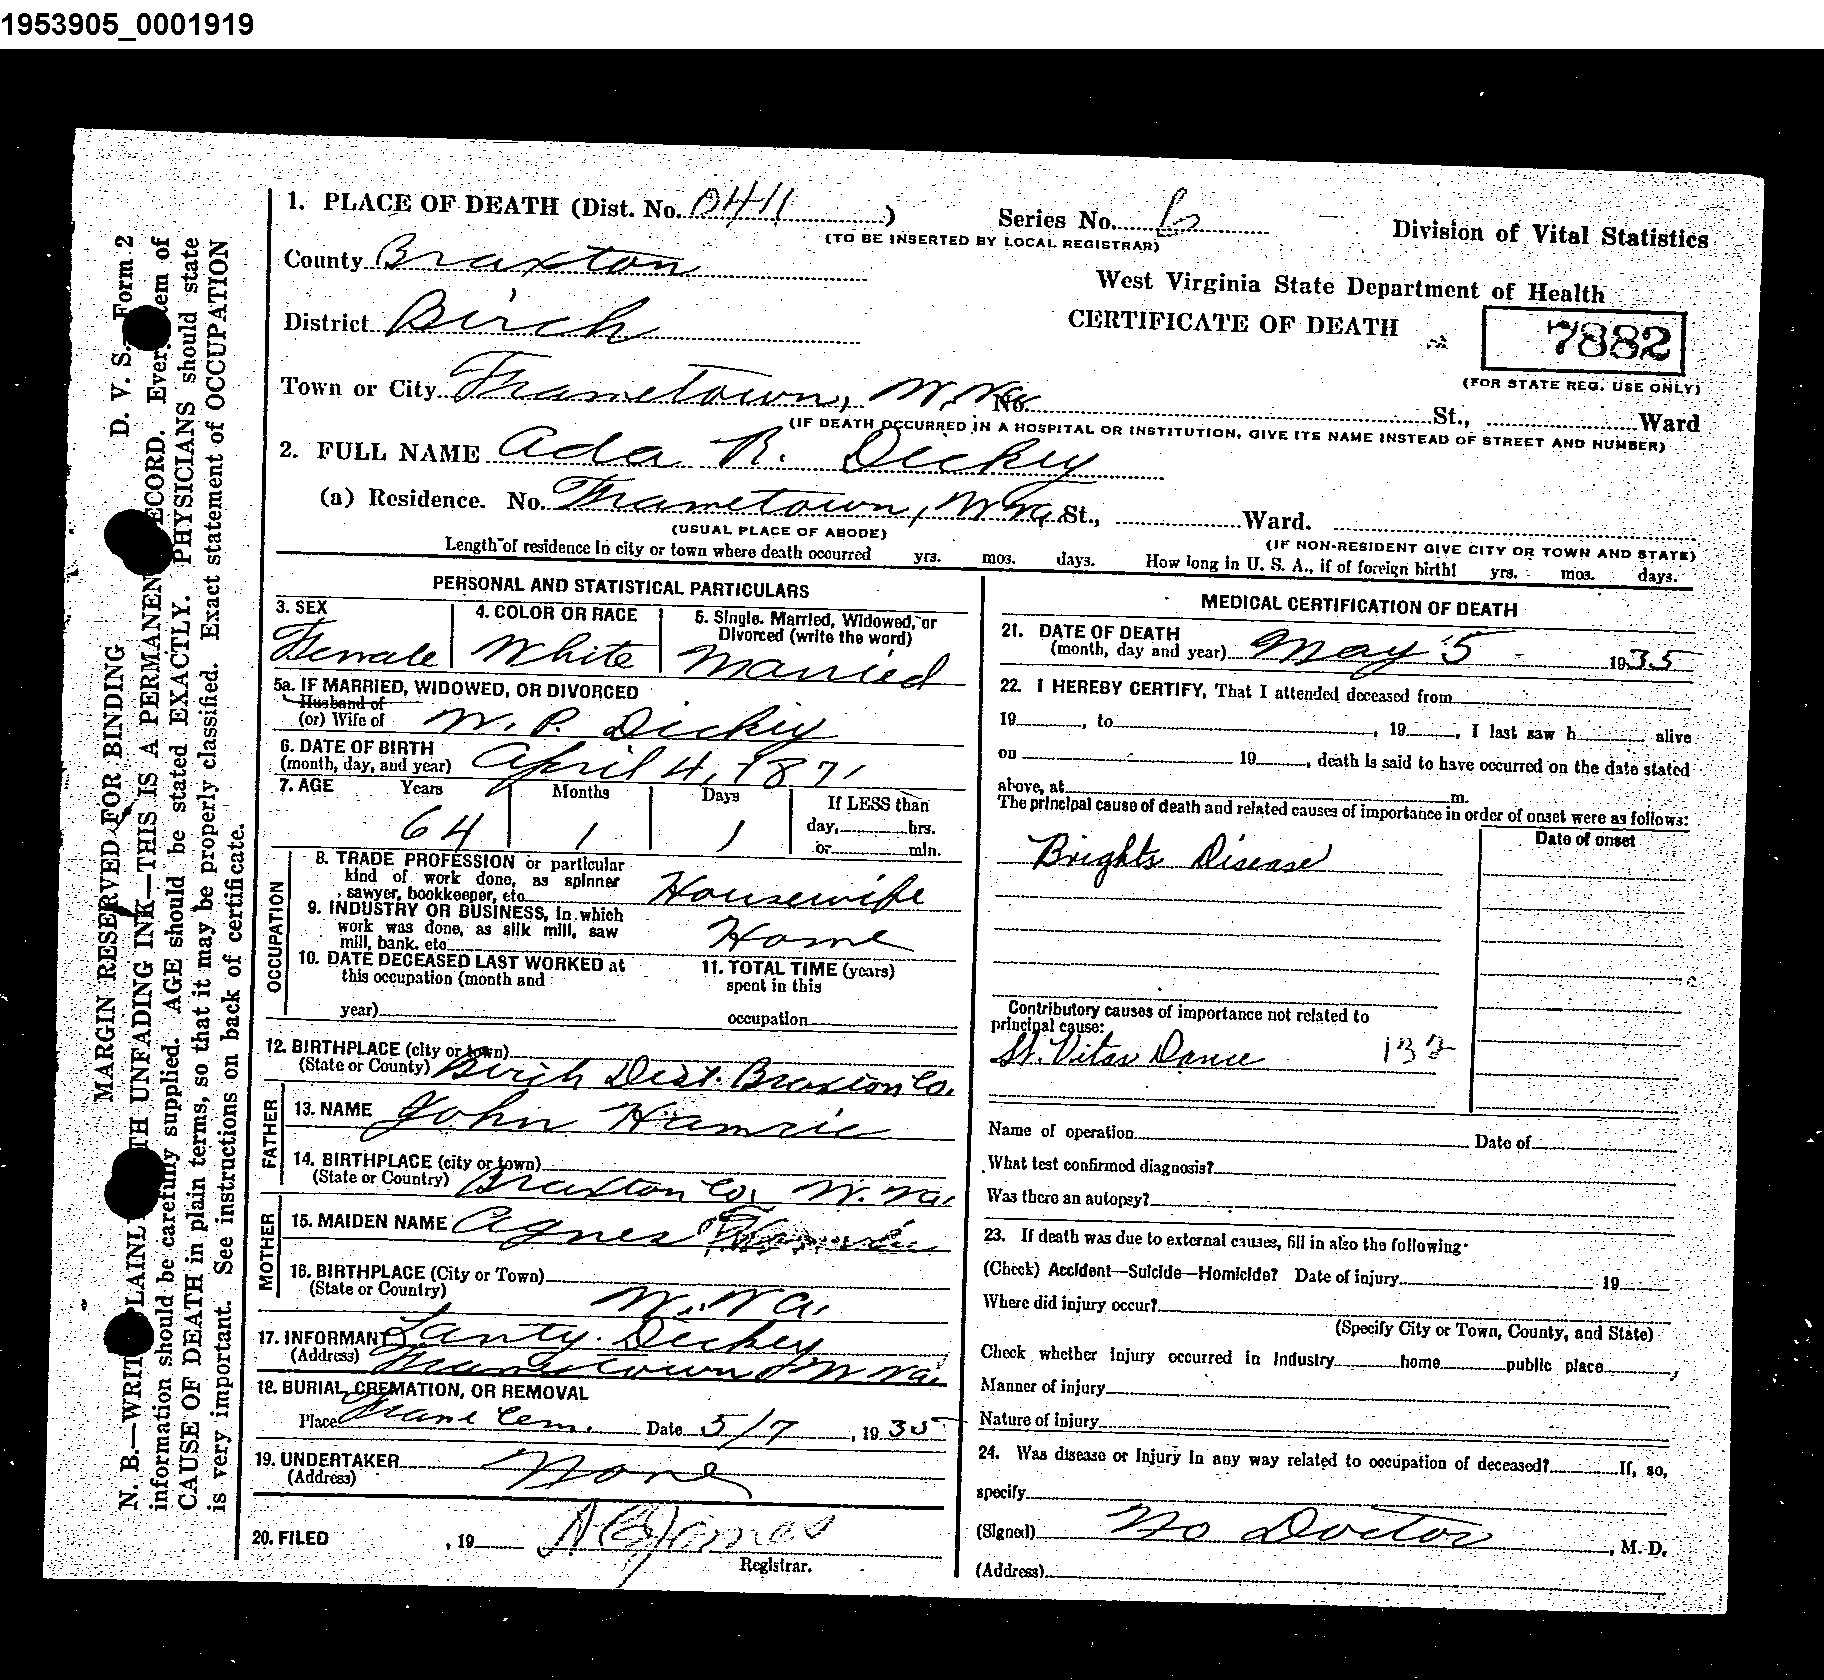 1953905_0001919
1. PLACE OF DEATH (Dist. No. 0411 ) Series No.
(TO BE INSERTED BY LOCAL REGISTRAR)
Division of Vital Statistics
County Braxton
West Virginia State Department of Health
District Birch
CERTIFICATE OF DEATH
7882
(FOR STATE REG. USE ONLY)
Town or City Frametown, W. Va. No. St., Ward
(IF DEATH OCCURRED IN A HOSPITAL OR INSTITUTION, GIVE ITS NAME INSTEAD OF STREET AND NUMBER)
2. FULL NAME Ada R. Dickey
(a) Residence. No. Frametown, W Va. St., Ward.
(USUAL PLACE OF ABODE) (IF NON-RESIDENT GIVE CITY OR TOWN AND STATE)
Length of residence in city or town where death occurred yrs. mos. days. How long in U. S. A., if of foreign birth! yrs. mos. days.
PERSONAL AND STATISTICAL PARTICULARS
3. SEX 4. COLOR OR RACE 5. Single, Married, Widowed, or
Divorced (write the word)
Female White Married
5a. IF MARRIED, WIDOWED, OR DIVORCED
Husband of
(or) Wife of W. P. Dickey
6. DATE OF BIRTH
(month, day, and year) April 4, 1871
7. AGE Years Months Days If LESS than
day, hrs.
or min.
64 1 1
OCCUPATION
8. TRADE PROFESSION or particular
kind of work done, as spinner
sawyer, bookkeeper, etc. Housewife
9. INDUSTRY OR BUSINESS, in which
work was done, as silk mill, saw
mill, bank. etc Home
10. DATE DECEASED LAST WORKED at
this occupation (month and
year)
11. TOTAL TIME (years)
spent in this
occupation
12. BIRTHPLACE (city or town)
(State or County) Birch Dist. Braxton Co.
FATHER
13. NAME John Hamric
14. BIRTHPLACE (city or town)
(State or Country) Braxton Co. W. Va.
MOTHER
15. MAIDEN NAME Agnes
16. BIRTHPLACE (City or Town)
(State or Country) W. Va.
17. INFORMANT Lanty. Dickey
(Address) Frametown W Va.
18. BURIAL, CREMATION, OR REMOVAL
Place Frame Cem. Date 5/7, 1935
19. UNDERTAKER None
(Address)
20. FILED , 19
Registrar.
MEDICAL CERTIFICATION OF DEATH
21. DATE OF DEATH
(month, day and year) May 5 1935
22. I HEREBY CERTIFY, That I attended deceased from
19 , to , 19 , I last saw h alive
on 19 , death is said to have occurred on the date stated
above, at m.
The principal cause of death and related causes of importance in order of onset were as follows:
Date of onset
Brights Disease
Contributory causes of importance not related to
principal cause:
St. Vitas Dance 132
Name of operation Date of
What test confirmed diagnosis?
Was there an autopsy?
23. If death was due to external causes, fill in also the following:
(Check) Accident—Suicide—Homicide? Date of injury 19
Where did injury occur?
(Specify City or Town, County, and State)
Check whether injury occurred in Industry home public place
Manner of injury
Nature of injury
24. Was disease or injury in any way related to occupation of deceased? If, so,
specify
(Signed) No Doctor , M. D.
(Address)
D. V. S. Form 2
MARGIN RESERVED FOR BINDING
N. B.—WRITE PLAINLY WITH UNFADING INK—THIS IS A PERMANENT RECORD. Every item of
information should be carefully supplied. AGE should be stated EXACTLY. PHYSICIANS should state
CAUSE OF DEATH in plain terms, so that it may be properly classified. Exact statement of OCCUPATION
is very important. See instructions on back of certificate.